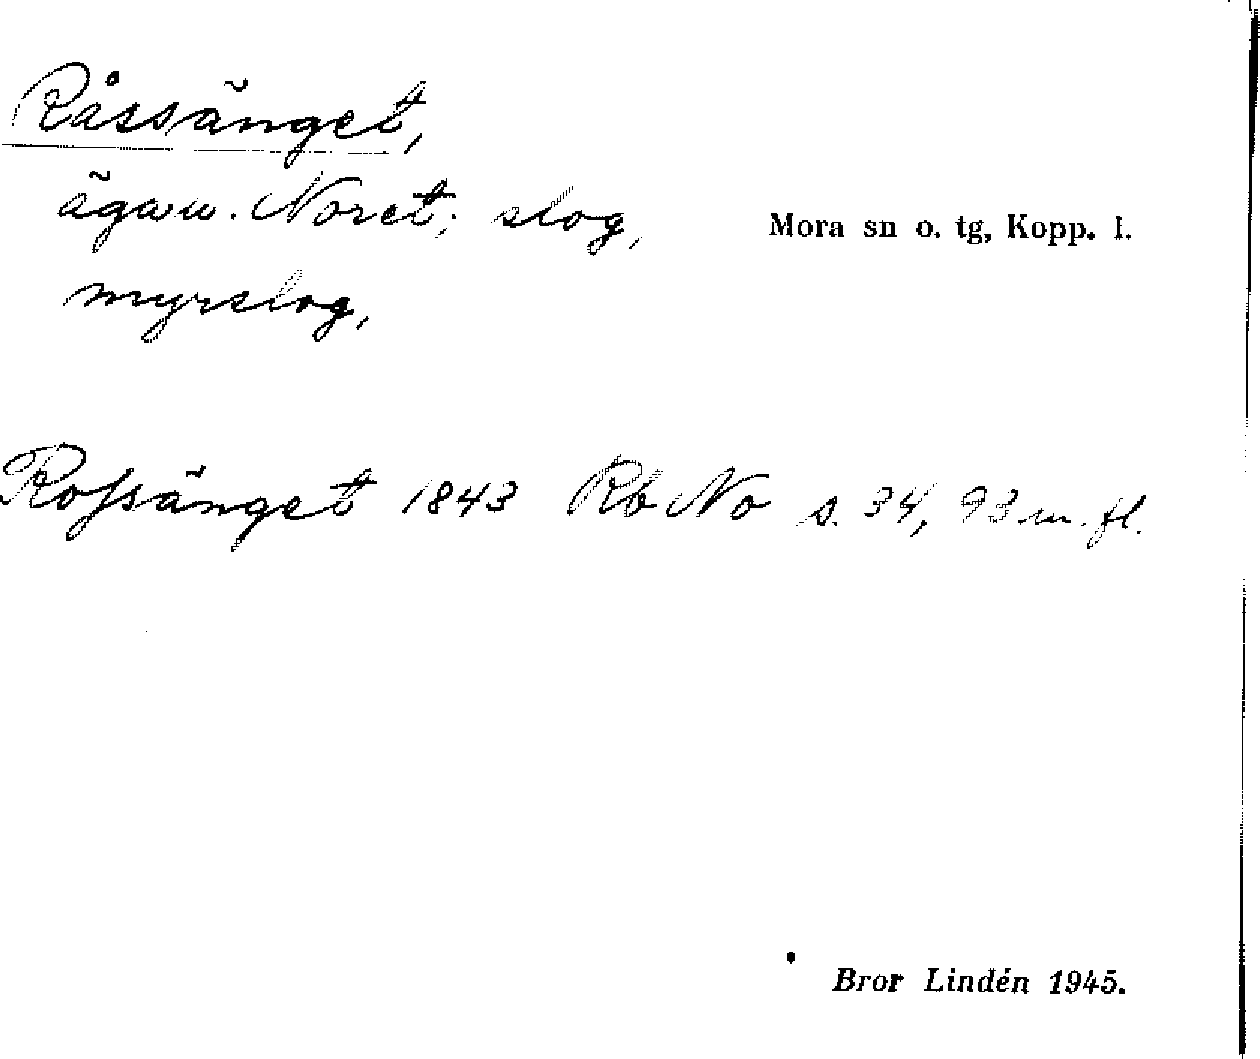 Råssänget,
ägor u. Noret; slog,
Mora sn o. tg, Kopp. l.
myrslog,
Rofsänget 1843 Rb No s. 34, 93 m. fl.
Bror Lindén 1945.